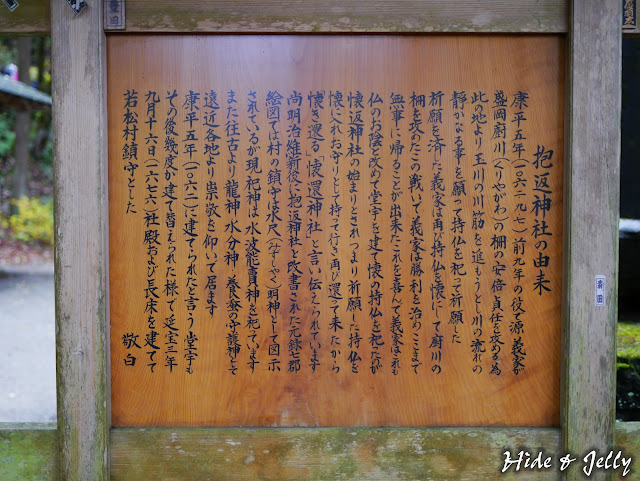 抱返神社の由来
康平五年(一〇六二・九・七)前九年の役で源義家が
盛岡厨川(くりやがわ)の柵の安倍貞任を攻める為
此の地より玉川の川筋を進もうと川の流れの
静かなる事を願って持仏を祀って祈願した
祈願を済した義家は再び持仏を懐にして厨川の
柵を攻めたこの戦いで義家は勝利を治めここまで
無事に帰ることが出来たこれを喜んで義家はこれも
仏のお陰と改めて堂宇を建て懐の持仏を祀たが
懐返神社の始まりとされつまり祈願した持仏を
懐に入れお守りとして持って行き再び還って来たから
懐き還る「懐還神社」と言い伝えられています
尚明治維新後に抱返神社と改書された元禄七郡
絵図では村の鎮守は水尺(みずしゃく)明神して図示
されているが現祀神は水波能賣神を祀ています
また往古より龍神 水分神 養蚕の守護神として
遠近各地より崇敬を仰いで居ます
康平五年(一〇六二)に建てられたと言う堂宇も
その後幾度か建て替えられた様で延宝三年
九月十六日(一六七六)社殿および長床を建てて
若松村鎮守とした
敬白
Hide & Jelly